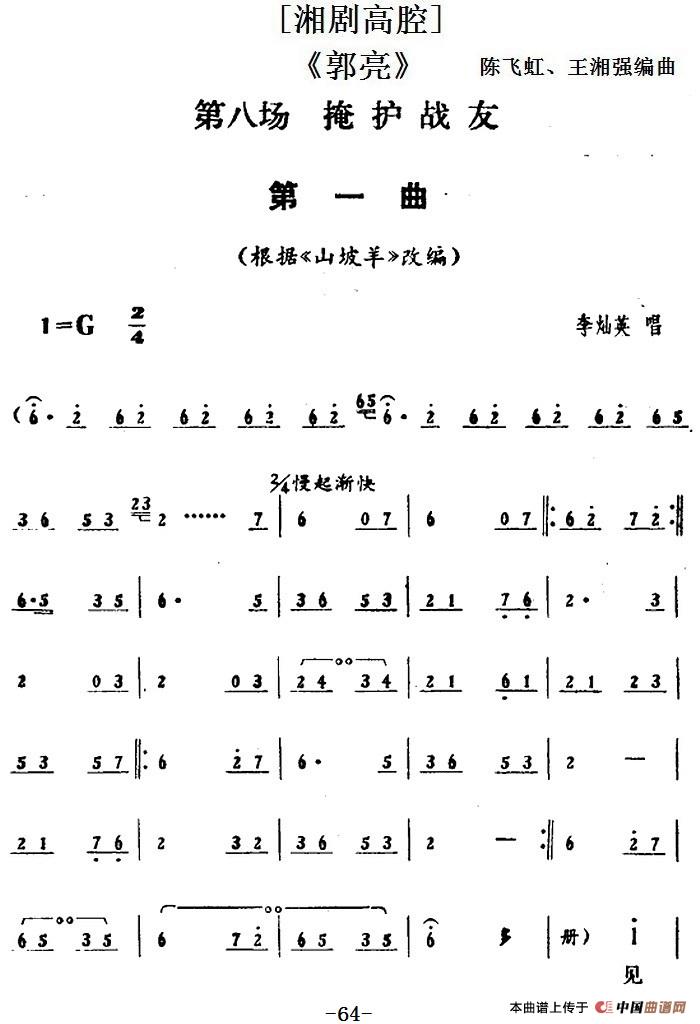 [湘剧高腔]
《郭亮》 陈飞虹、王湘强编曲
第八场 掩护战友
第一曲
(根据《山坡羊》改编)
1=G 2/4 李灿英 唱
( 6· 2 6 2 6 2 6 2 6 2 65 6· 2 6 2 6 2 6 2 6 5
2/4慢起渐快
3 6 5 3 23 2 …… 7 | 6 0 7 | 6 0 7 |: 6 2 7 2 :|
6·5 3 5 | 6· 5 | 3 6 5 3 | 2 1 7 6 | 2· 3 |
2 0 3 | 2 0 3 | 2 4 3 4 | 2 1 6 1 | 2 1 2 3 |
5 3 5 7 |: 6 2 7 | 6· 5 | 3 6 5 3 | 2 — |
2 1 7 6 | 2 3 2 | 3 6 5 3 | 2 — :| 6 2 7 |
6 5 3 5 | 6 7 2 | 6 5 3 5 | 6 多 | 册) i |
见
-64-
本曲谱上传于 中国曲谱网